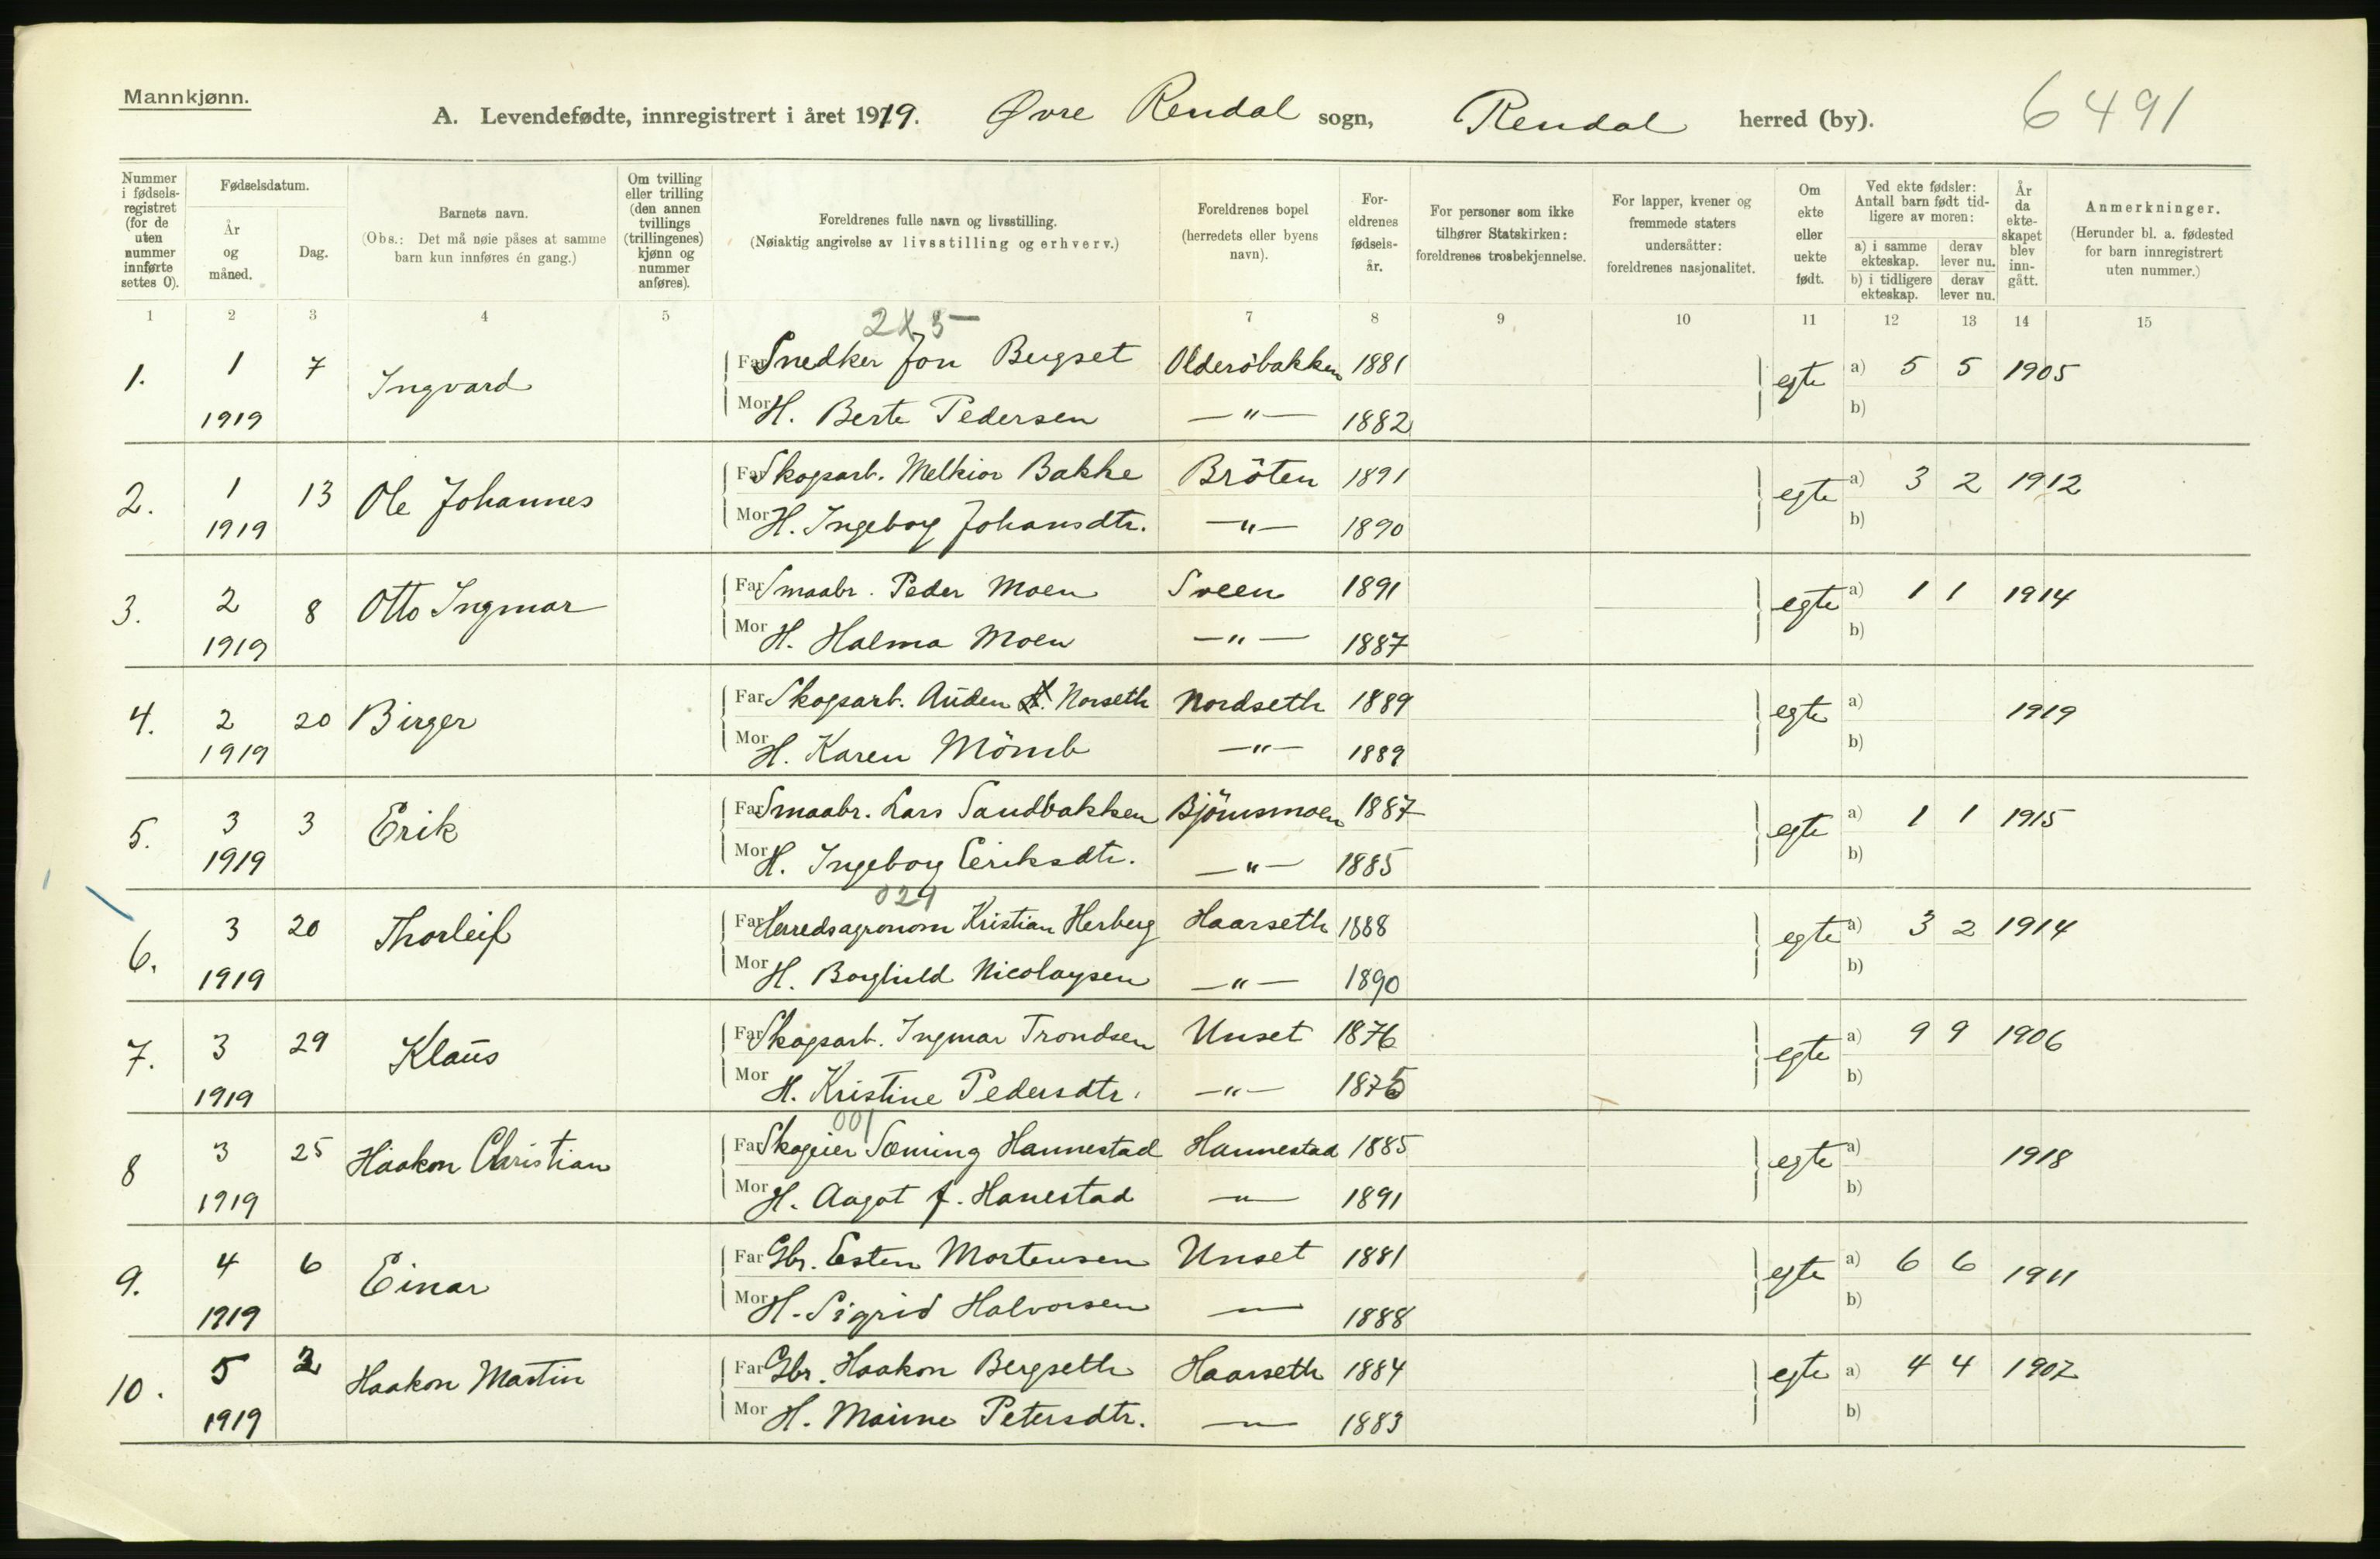 Mannkjønn.
A. Levendefødte, innregistrert i året 1919. Øvre Rendal sogn, Rendal herred (by). 6491
Nummer i fødselsregistret (for de uten nummer innførte settes 0).
Fødselsdatum.
År og måned.
Dag.
Barnets navn.
(Obs.: Det må nøie påses at samme barn kun innføres én gang.)
Om tvilling eller trilling (den annen tvillings (trillingenes) kjønn og nummer anføres).
Foreldrenes fulle navn og livsstilling.
(Nøiaktig angivelse av livsstilling og erhverv.)
Foreldrenes bopel (herredets eller byens navn).
Foreldrenes fødselsår.
For personer som ikke tilhører Statskirken: foreldrenes trosbekjennelse.
For lapper, kvener og fremmede staters undersåtter: foreldrenes nasjonalitet.
Om ekte eller uekte født.
Ved ekte fødsler: Antall barn født tidligere av moren:
a) i samme ekteskap. derav lever nu.
b) i tidligere ekteskap. derav lever nu.
År da ekteskapet blev inngått.
Anmerkninger.
(Herunder bl. a. fødested for barn innregistrert uten nummer.)
1 2 3 4 5 7 8 9 10 11 12 13 14 15
1. 1 7 Ingvard Far Snedker Jon Bergset Olderöbakken 1881 egte a) 5 5 1905
1919 Mor H. Berte Pedersen —"— 1882 b)
2. 1 13 Ole Johannes Far Skogsarb. Melkior Bakke Bröten 1891 egte a) 3 2 1912
1919 Mor H. Ingeborg Johansdtr. —"— 1890 b)
3. 2 8 Otto Ingmar Far Smaabr. Peder Moen Sveen 1891 egte a) 1 1 1914
1919 Mor H. Halma Moen —"— 1887 b)
4. 2 20 Birger Far Skogsarb. Auden Norseth Nordseth 1889 egte a) 1919
1919 Mor H. Karen Mömb —"— 1889 b)
5. 3 3 Erik Far Smaabr. Lars Sandbakken Björnsmoen 1887 egte a) 1 1 1915
1919 Mor H. Ingeborg Eriksdtr. —"— 1885 b)
029
6. 3 20 Thorleif Far Herredsagronom Kristian Herberg Haarseth 1888 egte a) 3 2 1914
1919 Mor H. Borghild Nicolaysen —"— 1890 b)
7. 3 29 Klaus Far Skogsarb. Ingmar Trondsen Unset 1876 egte a) 9 9 1906
1919 Mor H. Kristine Pedersdtr. —"— 1875 b)
001
8 3 25 Haakon Christian Far Skogeier Sæming Hannestad Hannestad 1885 egte a) 1918
1919 Mor H. Aagot f. Hanestad —"— 1891 b)
9. 4 6 Einar Far Gbr. Esten Mortensen Unset 1881 egte a) 6 6 1911
1919 Mor H. Sigrid Halvorsen —"— 1888 b)
10. 5 2 Haakon Martin Far Gbr. Haakon Bergseth Haarseth 1884 egte a) 4 4 1902
1919 Mor H. Petersdtr. —"— 1883 b)